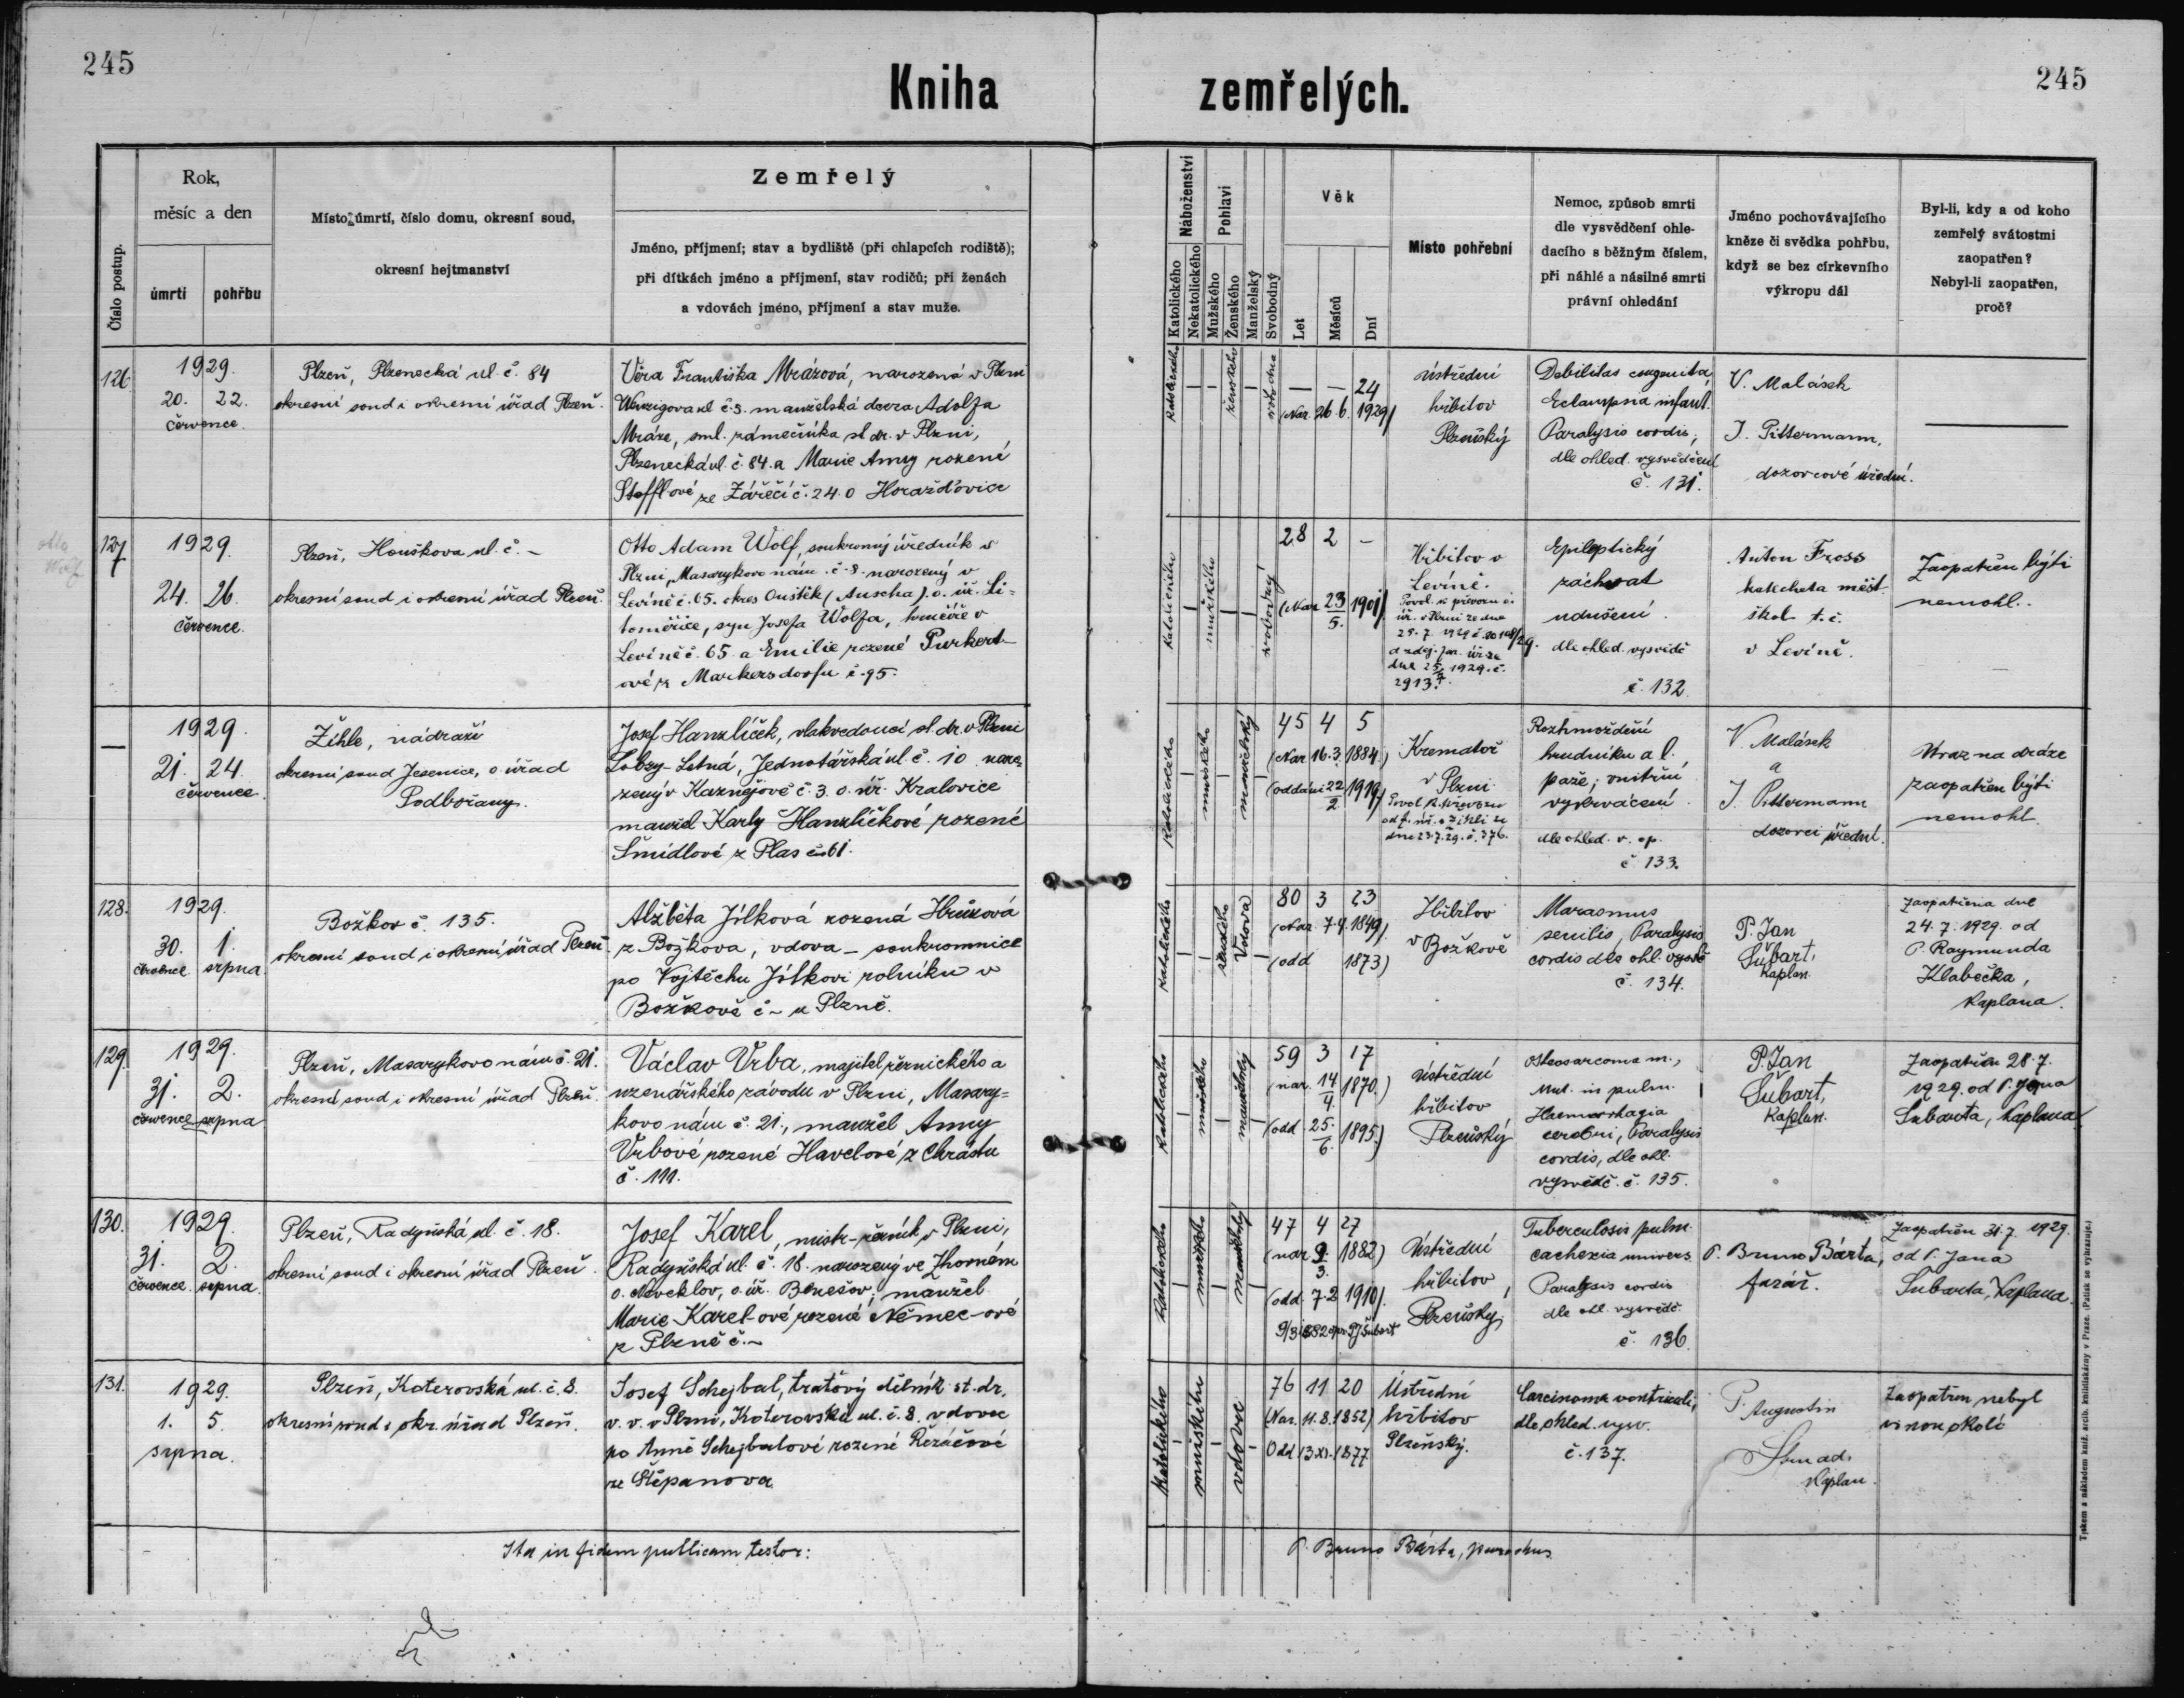 245
245
Kniha zemřelých.
Číslo postup.
Rok,
měsíc a den
úmrtí
pohřbu
Místo úmrtí, číslo domu, okresní soud,
okresní hejtmanství
Zemřelý
Jméno, příjmení; stav a bydliště (při chlapcích rodiště);
při dítkách jméno a příjmení, stav rodičů; při ženách
a vdovách jméno, příjmení a stav muže.
Náboženství
Katolického
Nekatolického
Pohlaví
Mužského
Ženského
Manželský
Svobodný
Věk
Let
Měsíců
Dní
Místo pohřební
Nemoc, způsob smrti
dle vysvědčení ohle-
dacího s běžným číslem,
při náhlé a násilné smrti
právní ohledání
Jméno pochovávajícího
kněze či svědka pohřbu,
když se bez církevního
výkropu dál
Byl-li, kdy a od koho
zemřelý svátostmi
zaopatřen?
Nebyl-li zaopatřen,
proč?
126
1929.
20. 22.
července.
Plzeň, Plzenecká ul. č. 84
okresní soud i okresní úřad Plzeň.
Věra Františka Mrázová, narozená v Plzni
Wenzigova ul č. 3. manželská dcera Adolfa
Mráze, sml. zámečníka st. dr. v Plzni,
Plzenecká ul. č. 84. a Marie Anny rozené
Stofflové ze Zářečí č. 24. o Horažďovice
Katolického
ženského
— — 24
(Nar. 26. 6. 1929)
ústřední
hřbitov
Plzeňský
Debilitas congenita,
Eclampsia infant.
Paralysis cordis,
dle ohled. vysvědčení
č. 131.
V. Malásek
J. Pittermann,
dozorcové úřední.
otto
Wolf
127
1929.
24. 26.
července.
Plzeň, Houškova ul. č. –
okresní soud i okresní úřad Plzeň.
Otto Adam Wolf, soukromý úředník v
Plzni, Masarykovo nám. č. 8. narozený v
Levíně č. 65. okres Ouštěk (Auscha). o. úř. Li-
toměřice, syn Josefa Wolfa, hrnčíře v
Levíně č. 65. a Emilie rozené Purkert-
ové z Markersdorfu č. 95.
Katolického
mužského
svobodný
28 2 –
(Nar 23/5. 1901)
Hřbitov v
Levíně.
Epileptický
záchvat
udušení.
dle ohled. vysvědč
č. 132.
Anton Fross
katecheta měšť.
škol t. č.
v Levíně.
Zaopatřen býti
nemohl.
—
1929.
21. 24.
července.
Žihle, nádraží
okresní soud Jesenice, o. úřad
Podbořany.
Josef Hanzlíček, vlakvedoucí st. dr. v Plzni
Lobzy-Letná, Jednotářská ul. č. 10. naro-
zený v Kaznějově č. 3. o. úř. Kralovice
manžel Karly Hanzlíčkové rozené
Šmídlové z Plas č. 61.
Katolického
mužského
manželský
45 4 5
(Nar 16. 3. 1884.)
(oddáni 22/2. 1919)
Krematoř
v Plzni
Rozhmoždění
hrudníku a l.
paže; vnitřní
vykrvácení.
dle ohled. v. op.
č. 133.
V. Malásek
a
J. Pittermann
dozorci úřední.
Úraz na dráze
zaopatřen býti
nemohl.
128.
1929.
30. 1.
července srpna.
Božkov č. 135.
okresní soud i okresní úřad Plzeň.
Alžběta Jílková rozená Hrůzová
z Božkova, vdova – soukromnice
po Vojtěchu Jílkovi rolníku v
Božkově č – u Plzně.
Katolického
ženského
Vdova
80 3 23
(Nar. 7. 4. 1849)
(odd 1873)
Hřbitov
v Božkově
Marasmus
senilis, Paralysis
cordis dle ohl. vysvě
č. 134.
P. Jan
Šubart,
Kaplan.
Zaopatřena dne
24. 7. 1929. od
P. Raymunda
Klabečka,
Kaplana.
129.
1929.
31. 2.
července srpna
Plzeň, Masarykovo nám č. 21.
okresní soud i okresní úřad Plzeň.
Václav Vrba, majitel řeznického a
uzenářského závodu v Plzni, Masary-
kovo nám č. 21., manžel Anny
Vrbové rozené Havelové z Chrástu
č. 111.
Katolického
mužského
manželský
59 3 17
(nar. 14/4. 1870.)
(odd 25./6. 1895.)
ústřední
hřbitov
Plzeňský
Osteosarcoma m.,
Met. in pulm.
Haemorrhagia
cerebri, Paralysis
cordis, dle ohl.
vysvědč. č. 135.
P. Jan
Šubart,
Kaplan.
Zaopatřen 28. 7.
1929. od P. Jana
Šubarta, Kaplana
130.
1929.
31. 2.
července. srpna.
Plzeň, Radyňská ul. č. 18.
okresní soud i okresní úřad Plzeň.
Josef Karel, mistr-řezník v Plzni,
Radyňská ul. č. 18. narozený ve Zhorném
o. Neveklov, o. úř. Benešov, manžel
Marie Karel-ové rozené Němec-ové
z Plzně č. –
Katolického
mužského
manželský
47 4 27
(nar 9/3. 1882)
(odd. 7. 2 1910).
Ústřední
hřbitov,
Plzeňský,
Tuberculosis pulm.
cachexia univers.
Paralysis cordis
dle ohl. vysvědč.
č. 136.
P. Bruno Bárta,
farář.
Zaopatřen 31. 7. 1929.
od P. Jana
Šubarta, Kaplana.
131.
1929.
1. 5.
srpna.
Plzeň, Koterovská ul. č. 8.
okresní soud i okr. úřad Plzeň.
Josef Schejbal, traťový dělník st. dr.
v. v. v Plzni, Koterovská ul. č. 8. vdovec
po Anně Schejbalové rozené Řezáčové
ze Štěpanova.
Katolického
mužského
vdovec
76 11 20
(Nar. 11. 8. 1852)
Odd 13. XI. 1877
Ústřední
hřbitov
Plzeňský.
Carcinoma ventriculi,
dle ohled. vysv.
č. 137.
P. Augustin
Kaplan.
Zaopatřen nebyl
vinou okolí
Ita in fidem publicam testor:
P. Bruno Bárta, parochus